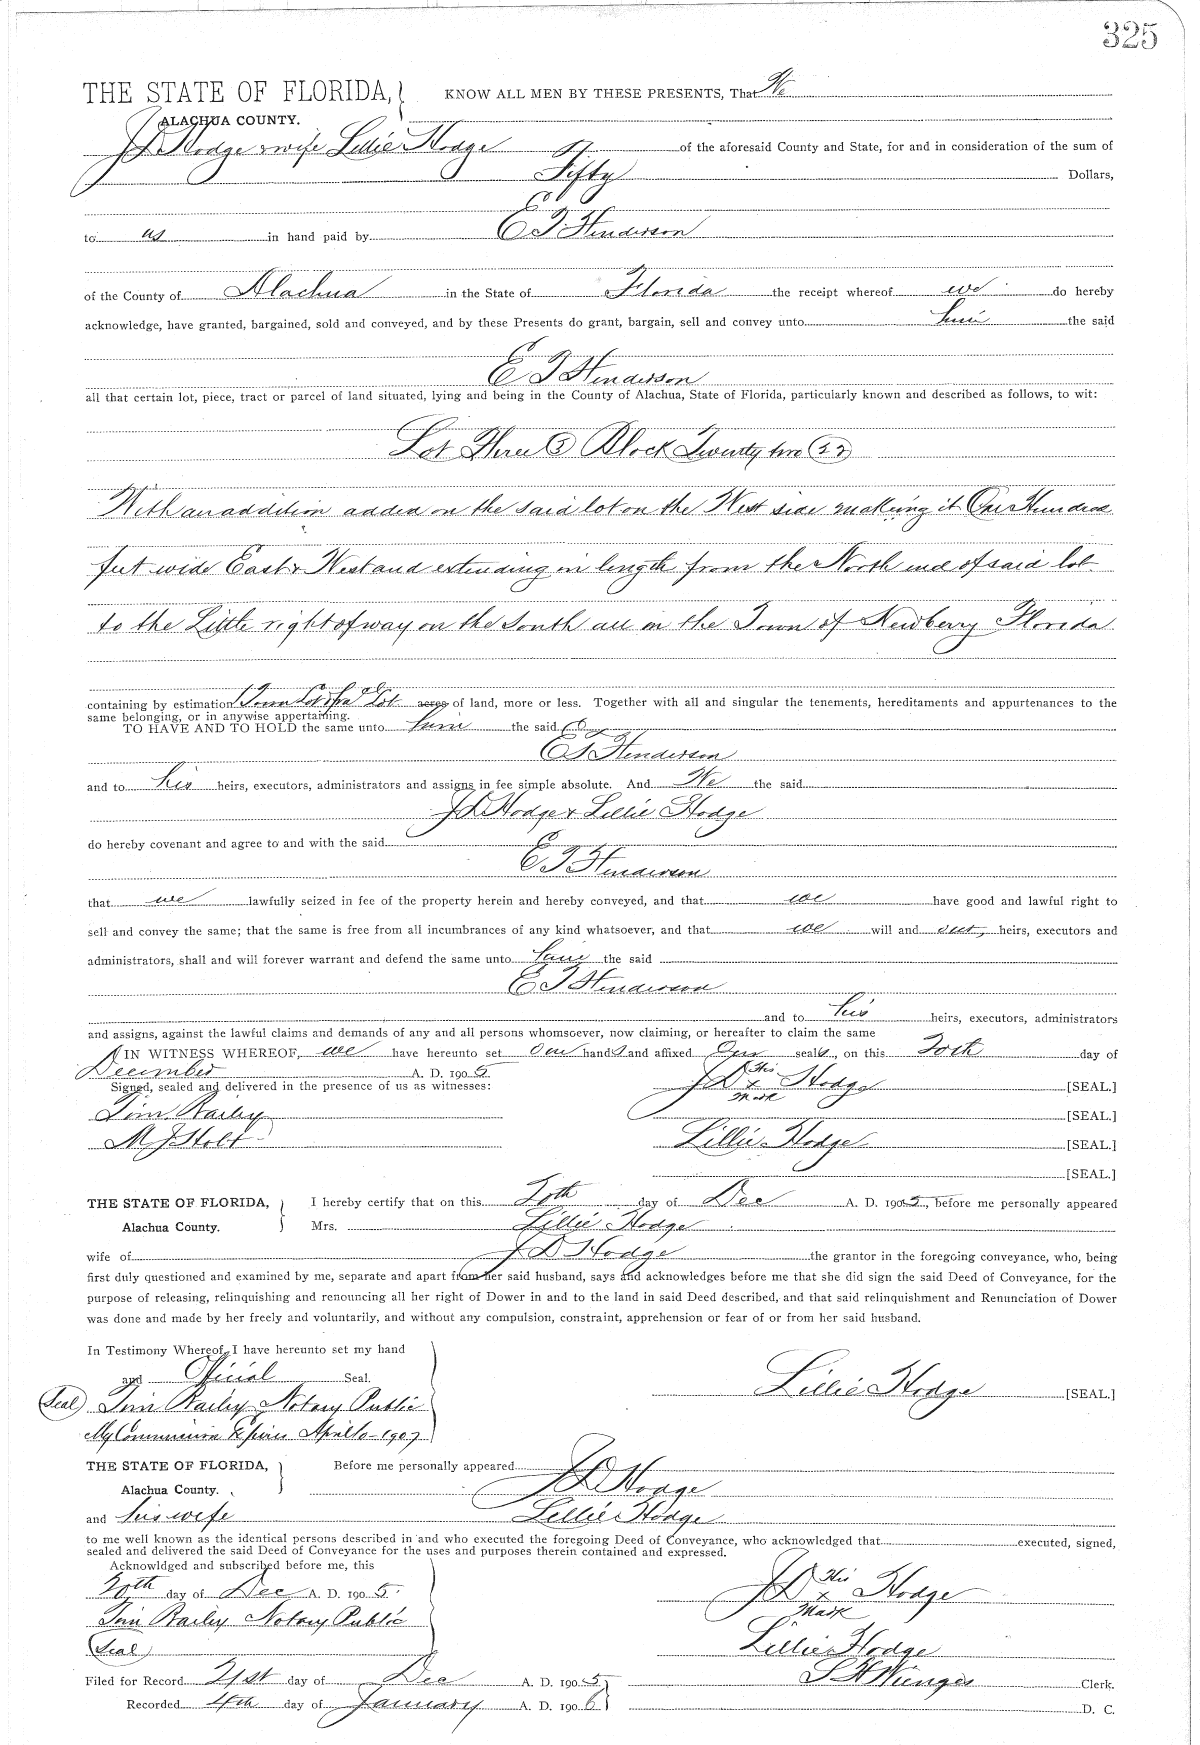 325
THE STATE OF FLORIDA, KNOW ALL MEN BY THESE PRESENTS, That We
ALACHUA COUNTY.
J D Hodge & wife Lillie Hodge of the aforesaid County and State, for and in consideration of the sum of
Fifty Dollars,
to us in hand paid by E T Henderson
of the County of Alachua in the State of Florida the receipt whereof we do hereby
acknowledge, have granted, bargained, sold and conveyed, and by these Presents do grant, bargain, sell and convey unto him the said
E T Henderson
all that certain lot, piece, tract or parcel of land situated, lying and being in the County of Alachua, State of Florida, particularly known and described as follows, to wit:
Lot Three (3) Block Twenty two (22)
With an addition added on the said lot on the West side making it One Hundred
feet wide East & West and extending in length from the North end of said lot
to the Little right of way on the South all in the Town of Newberry Florida
containing by estimation 1 Town Lot & pa of Lot acres of land, more or less. Together with all and singular the tenements, hereditaments and appurtenances to the
same belonging, or in anywise appertaining.
TO HAVE AND TO HOLD the same unto him the said
E T Henderson
and to his heirs, executors, administrators and assigns in fee simple absolute. And We the said
J D Hodge & Lillie Hodge
do hereby covenant and agree to and with the said
E T Henderson
that we lawfully seized in fee of the property herein and hereby conveyed, and that we have good and lawful right to
sell and convey the same; that the same is free from all incumbrances of any kind whatsoever, and that we will and our heirs, executors and
administrators, shall and will forever warrant and defend the same unto him the said
E T Henderson
and to his heirs, executors, administrators
and assigns, against the lawful claims and demands of any and all persons whomsoever, now claiming, or hereafter to claim the same
IN WITNESS WHEREOF, we have hereunto set our hands and affixed Our seals, on this 20th day of
December A. D. 1905
Signed, sealed and delivered in the presence of us as witnesses: J D His x mark Hodge [SEAL.]
Tim Railey [SEAL.]
M J Holt Lillie Hodge [SEAL.]
[SEAL.]
THE STATE OF FLORIDA, I hereby certify that on this 20th day of Dec A. D. 1905, before me personally appeared
Alachua County. Mrs. Lillie Hodge
wife of J D Hodge the grantor in the foregoing conveyance, who, being
first duly questioned and examined by me, separate and apart from her said husband, says and acknowledges before me that she did sign the said Deed of Conveyance, for the
purpose of releasing, relinquishing and renouncing all her right of Dower in and to the land in said Deed described, and that said relinquishment and Renunciation of Dower
was done and made by her freely and voluntarily, and without any compulsion, constraint, apprehension or fear of or from her said husband.
In Testimony Whereof, I have hereunto set my hand
and Official Seal. Lillie Hodge [SEAL.]
(Seal) Tim Railey Notary Public
My Commission Expires April 10 - 1907
THE STATE OF FLORIDA, Before me personally appeared
Alachua County. J D Hodge
and his wife Lillie Hodge
to me well known as the identical persons described in and who executed the foregoing Deed of Conveyance, who acknowledged that executed, signed,
sealed and delivered the said Deed of Conveyance for the uses and purposes therein contained and expressed.
Acknowldged and subscribed before me, this
20th day of Dec A. D. 1905. J D His x mark Hodge
Tim Railey Notary Public
(Seal) Lillie Hodge
Filed for Record 21st day of Dec A. D. 1905 S H Wienges Clerk.
Recorded 4th day of January A. D. 1906 D. C.